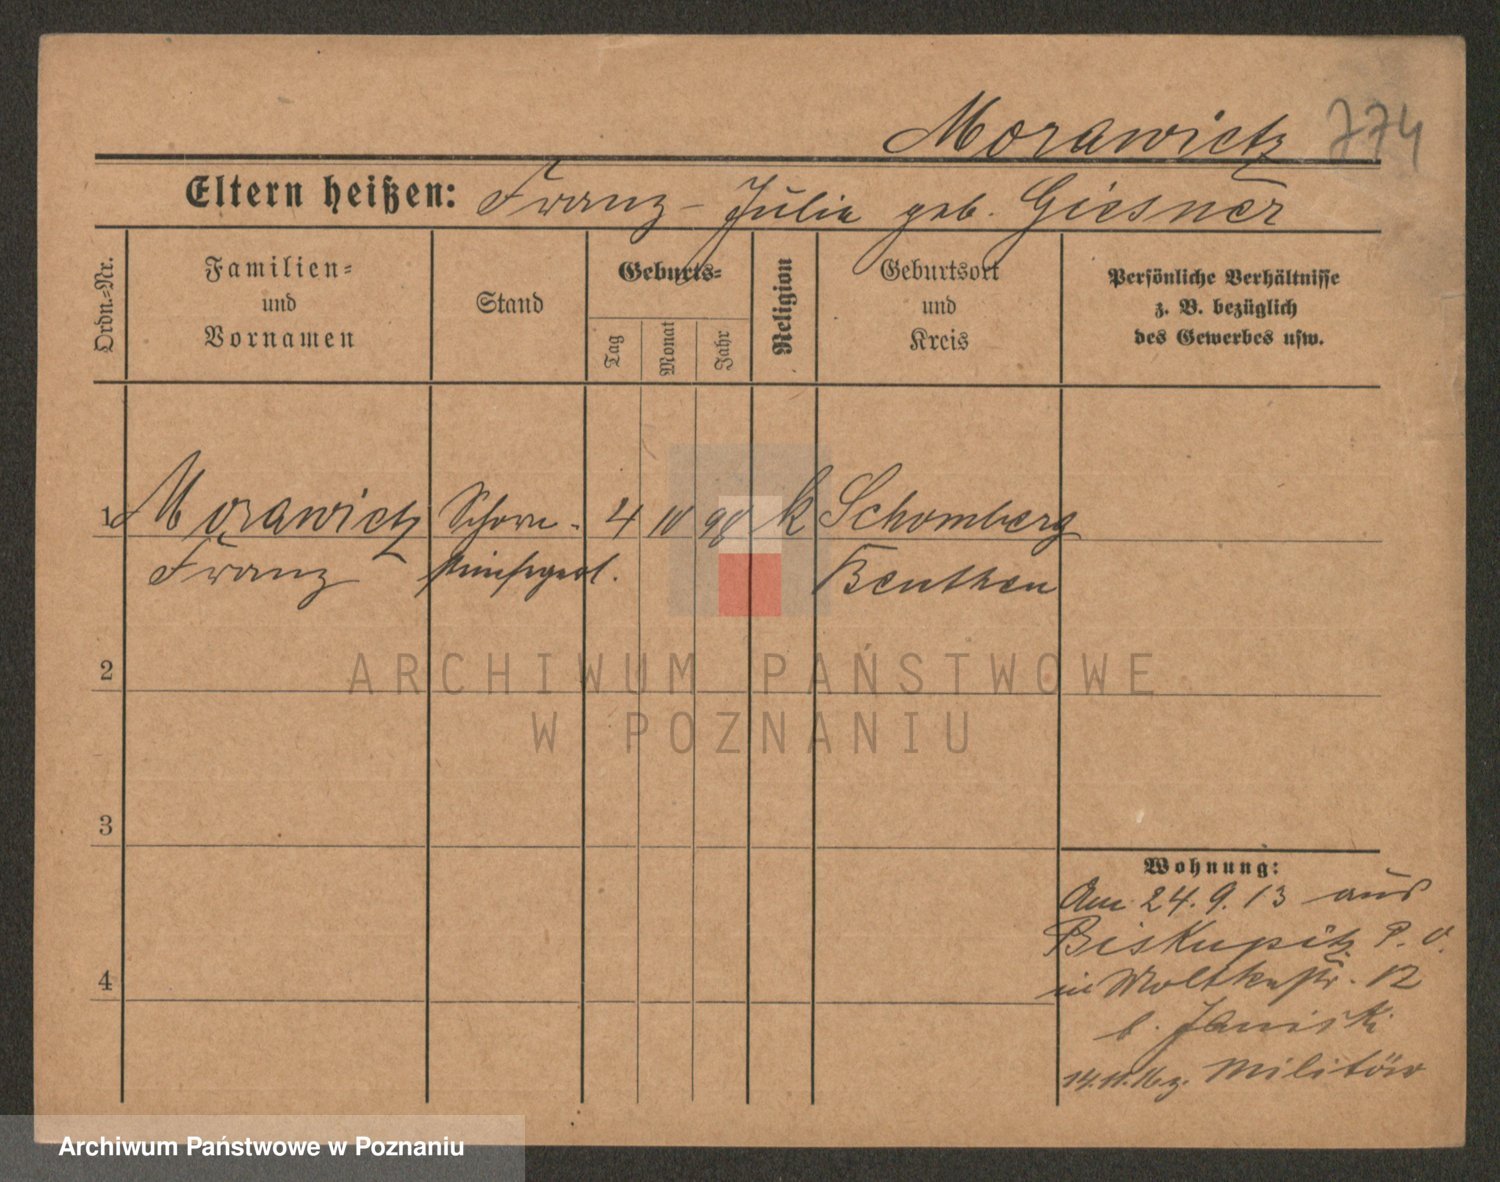 Morawietz 774
Eltern heißen: Franz - Julie geb. Giesner
Ordn.=Nr.
Familien=
und
Vornamen
Stand
Geburts=
Tag
Monat
Jahr
Religion
Geburtsort
und
Kreis
Persönliche Verhältnisse
z. B. bezüglich
des Gewerbes usw.
1 Morawietz Schorn- 4 10 98 k Schomberg
Franz steinfegerl. Beuthen
2
3
4
Wohnung:
Am 24.9.13 aus
Biskupitz P. O.
in Moltkestr. 12
b. Janiski
14.11.16 z. Militär
ARCHIWUM PAŃSTWOWE
W POZNANIU
Archiwum Państwowe w Poznaniu